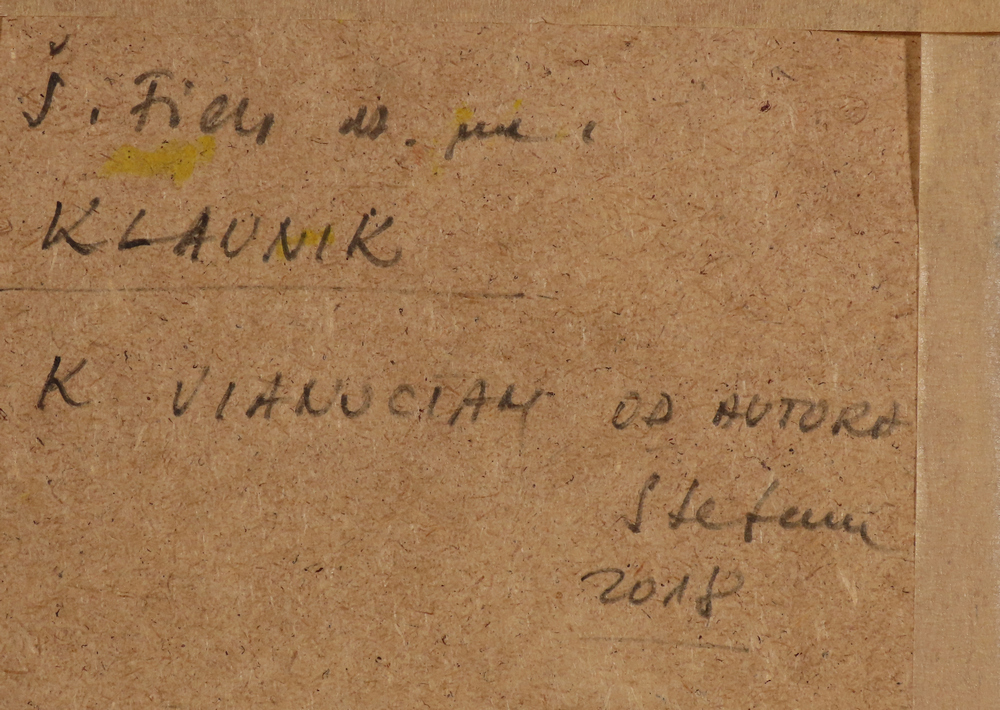 Š.
KLAUNIK
K VIANOCIAM OD AUTORA
Stefan
2018